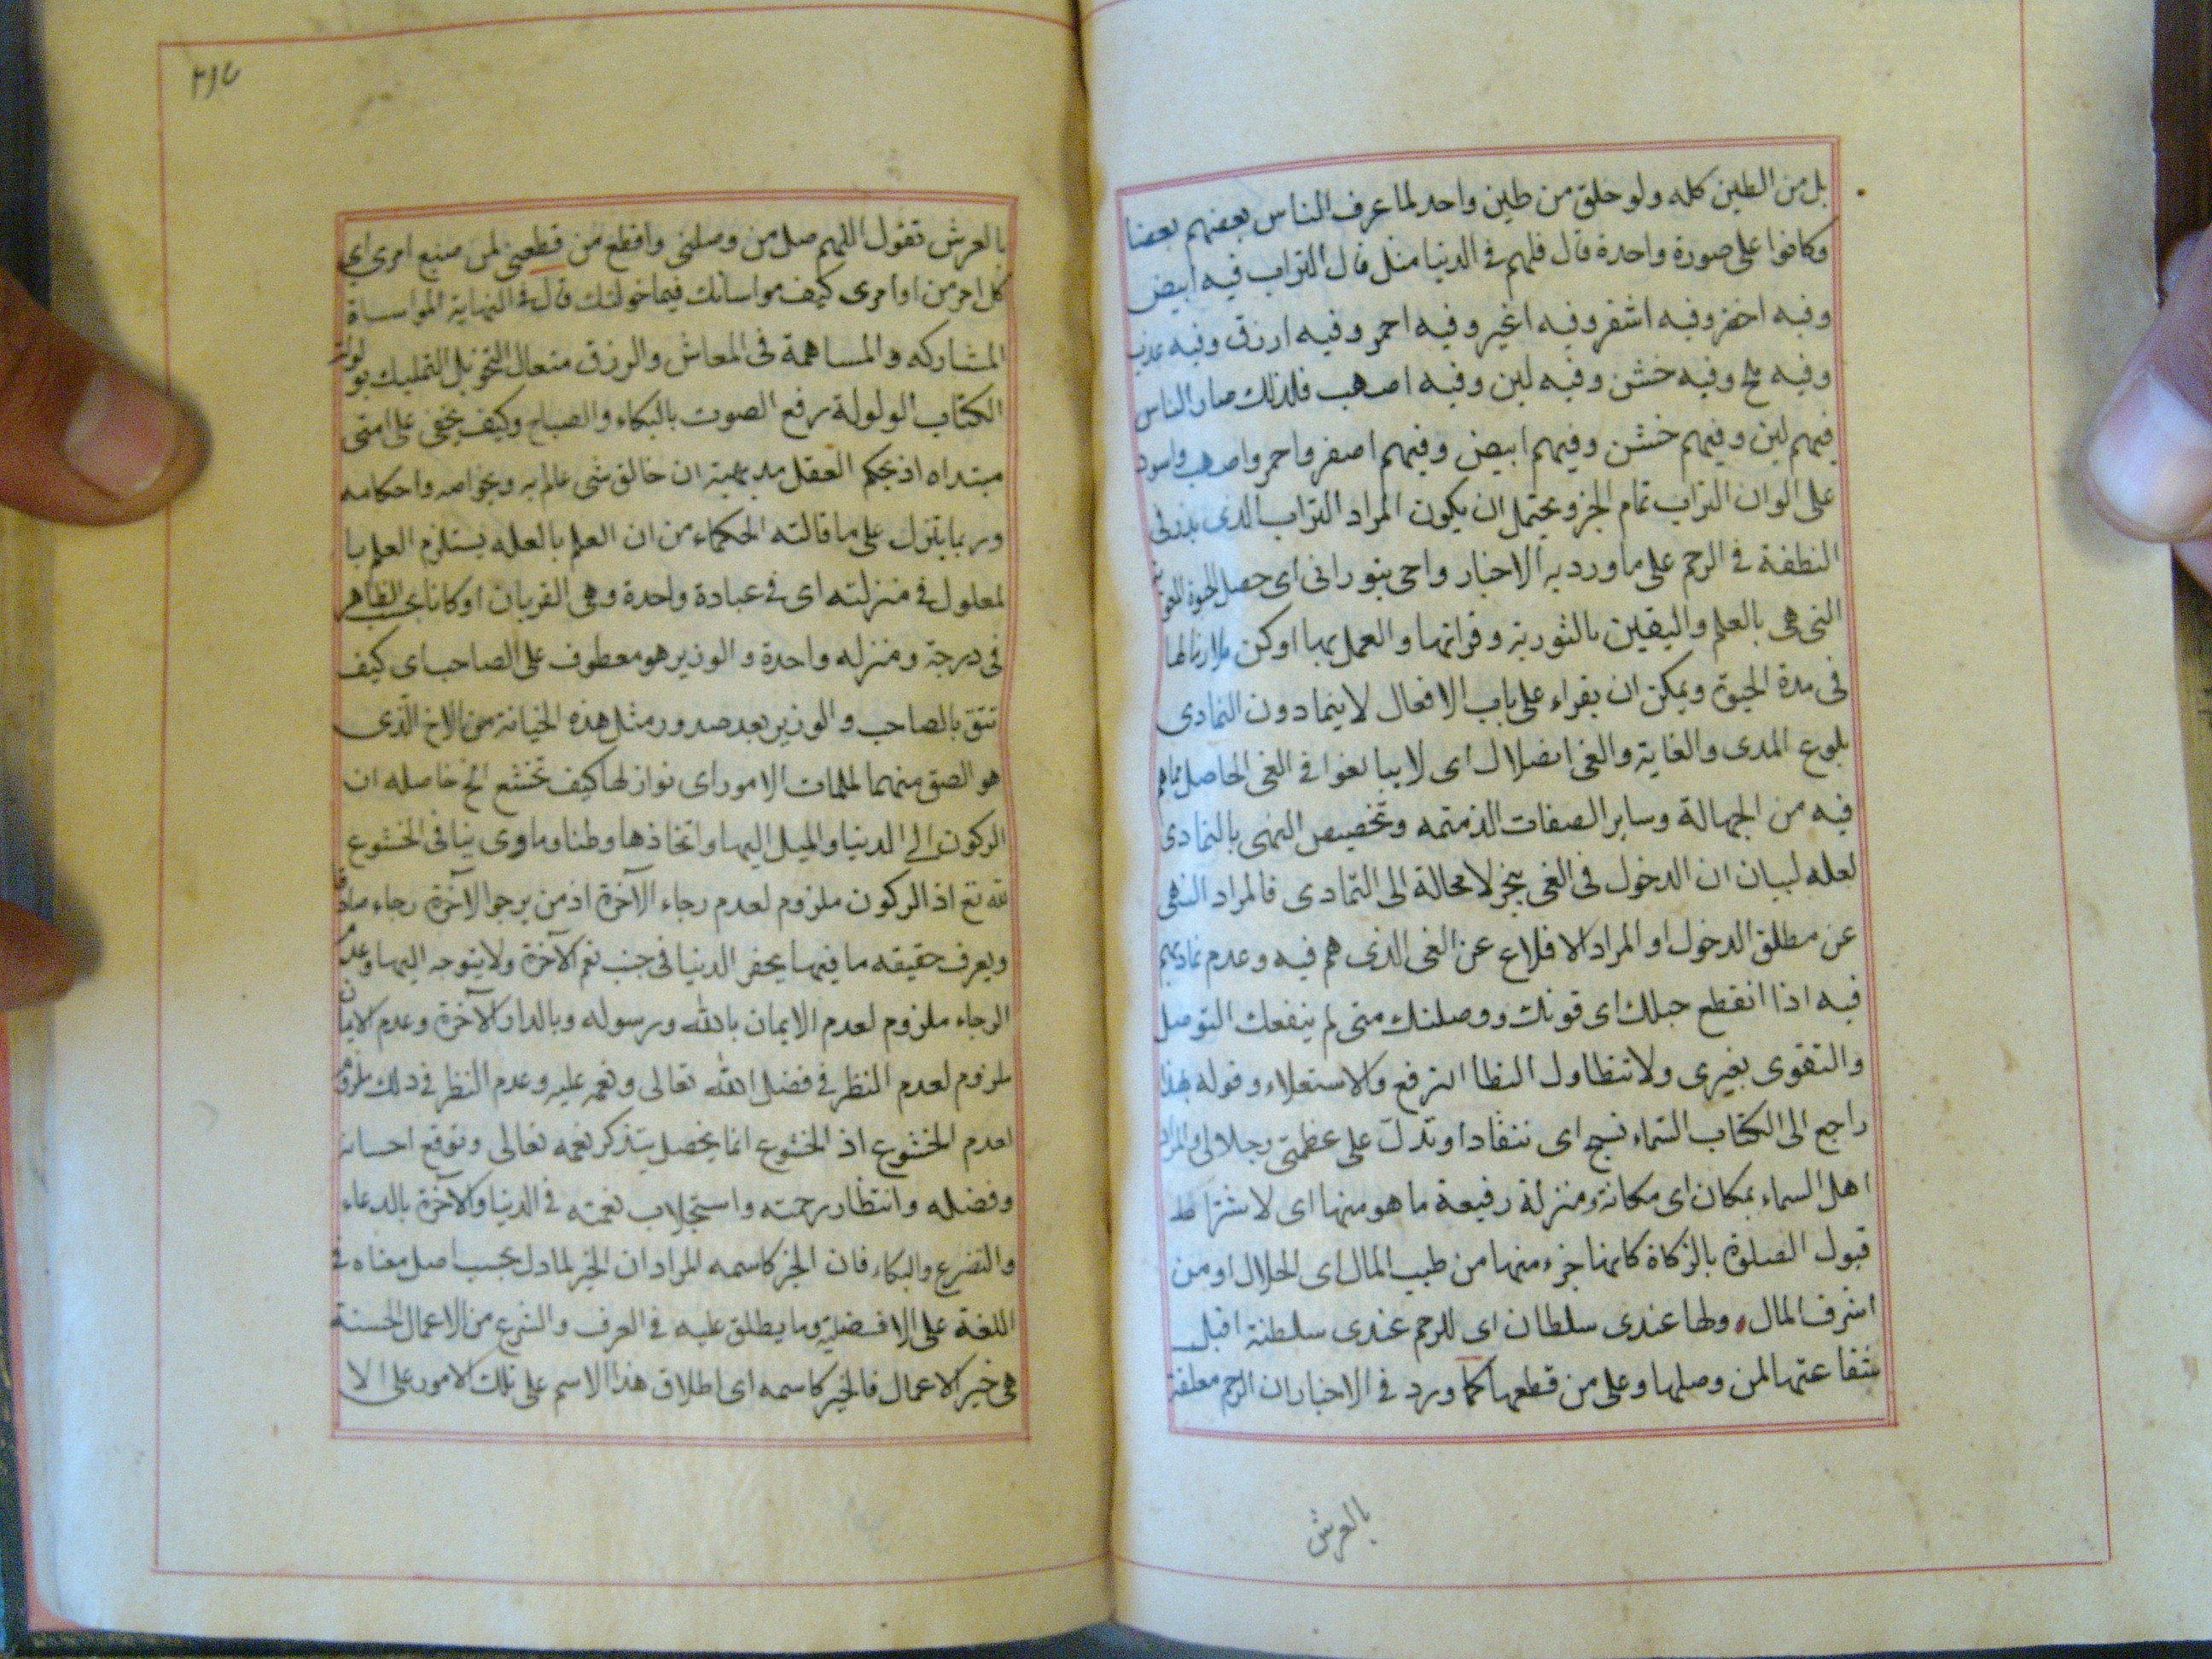 بل من الطين كله ولو خلق من طين واحد لما عرف الناس بعضهم بعضا
وكانوا على صورة واحدة قال فلهم فى الدنيا مثل قال التراب فيه ابيض
وفيه اخضر وفيه اشقر وفيه اغبر وفيه احمر وفيه ازرق وفيه عذب
وفيه ملح وفيه خشن وفيه لين وفيه اصهب فلذلك صار الناس
فيهم لين وفيهم خشن وفيهم ابيض وفيهم اصفر واحمر واصهب واسود
على الوان التراب تمام الخبر ويحتمل ان يكون المراد التراب الذى يذر فى
النطفة فى الرحم على ما ورد به الاخبار واحى بنورانى اى حصل الحيوة
التى هى بالعلم واليقين بالتورية وقرائتها والعمل بها او كن
فى مدة الحيوة ويمكن ان يقراء على باب الافعال لا يتمادون التمادى
بلوغ المدى والغاية والغى الضلال اى لا يبالغوا فى الغى الحاصل مما هم
فيه من الجهالة وساير الصفات الذميمه وتخصيص النهى بالتمادى
لعله لبيان ان الدخول فى الغى ينجر لا محالة الى التمادى فالمراد النهى
عن مطلق الدخول او المراد الاقلاع عن الغى الذى هم فيه وعدم تماديهم
فيه اذا انقطع حبلك اى قوتك ووصلتك متى لم ينفعك التوصل
والتقوى بغيرى ولا تتطاول التطا الترفع والاستعلاء وقوله بهذا
راجع الى الكتاب السماء تسبح اى تنقاد او تدل على عظمتى وجلالى والمراد
اهل السماء بمكان اى مكانة ومنزلة رفيعة ما هو منها اى لاشتراط
قبول الصلوة بالزكاة كانها جزء منها من طيب المال اى الحلال او من
اشرف المال ولها عندى سلطان اى للرحم عندى سلطنة اقبل
شفاعتها لمن وصلها وعلى من قطعها كما ورد فى الاخبار ان الرحم معلقة
بالعرش
بالعرش تقول اللهم صل من وصلنى واقطع من قطعنى لمن صنع امرى اى
كل امر من اوامرى كيف مواساتك فيما خولتك قال فى النهاية المواساة
المشاركه والمساهمة فى المعاش والرزق متعال التخويل التمليك
الكتاب الولولة رفع الصوت بالبكاء والصياح وكيف يخفى على امتى
مبتداه اذ يحكم العقل بديهة ان خالق شى عالم به وبخواصه واحكامه
وربما يتنزل على ما قالته الحكماء من ان العلم بالعله يستلزم العلم با
لمعلول فى منزلته اى فى عبادة واحدة وهى القربان او كانا بحسب الظاهر
فى درجة ومنزله واحدة والوزير هو معطوف على الصاحب اى كيف
تثق بالصاحب والوزير بعد صدور مثل هذه الخيانة من الاخ الذى
هو الصق منهما لملمات الامور اى نوازلها كيف تخشع الخ حاصله ان
الركون الى الدنيا والميل اليها واتخاذها وطنا وماوى ينافى الخشوع
لله تع اذ الركون ملزوم لعدم رجاء الآخرة اذ من يرجو الآخرة رجاء صادقا
ويعرف حقيقه ما فيها يحقر الدنيا فى جنب نعم الآخرة ولا يتوجه اليها وعدم
الرجاء ملزوم لعدم الايمان بالله ورسوله وبالدار الآخرة وعدم الايمان
ملزوم لعدم النظر فى فضل الله تعالى ونعمه عليه وعدم النظر فى ذلك ملزوم
لعدم الخشوع اذ الخشوع انما يحصل بتذكر نعمه تعالى وتوقع احسانه
وفضله وانتظار رحمته واستجلاب نعمته فى الدنيا والآخرة بالدعاء
والتضرع والبكاء فان الخير كاسمه المراد ان الخير لما دل بحسب اصل معناه فى
اللغة على الافضلية وما يطلق عليه فى العرف والشرع من الاعمال الحسنة
هى خير الاعمال فالخير كاسمه اى اطلاق هذا الاسم على تلك الامور على الا